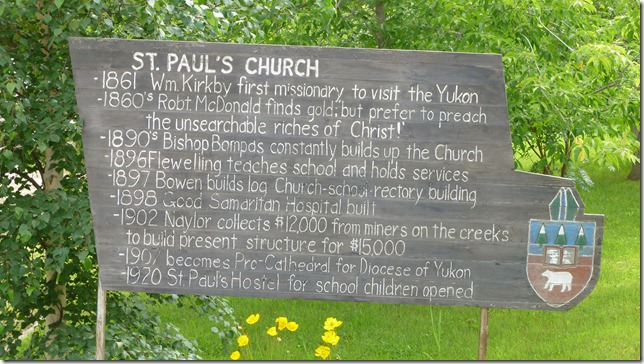 ST. PAUL'S CHURCH
-1861 Wm. Kirkby first missionary to visit the Yukon
-1860's Robt McDonald finds gold, but prefer to preach
the unsearchable riches of Christ!"
-1890's Bishop Bompas constantly builds up the Church
-1896 Flewelling teaches school and holds services
-1897 Bowen builds log Church-school-rectory building
-1898 Good Samaritan Hospital built
-1902 Naylor collects $12,000 from miners on the creeks
to build present structure for $15000
-1907 becomes Pro-Cathedral for Diocese of Yukon
-1920 St. Paul's Hostel for school children opened